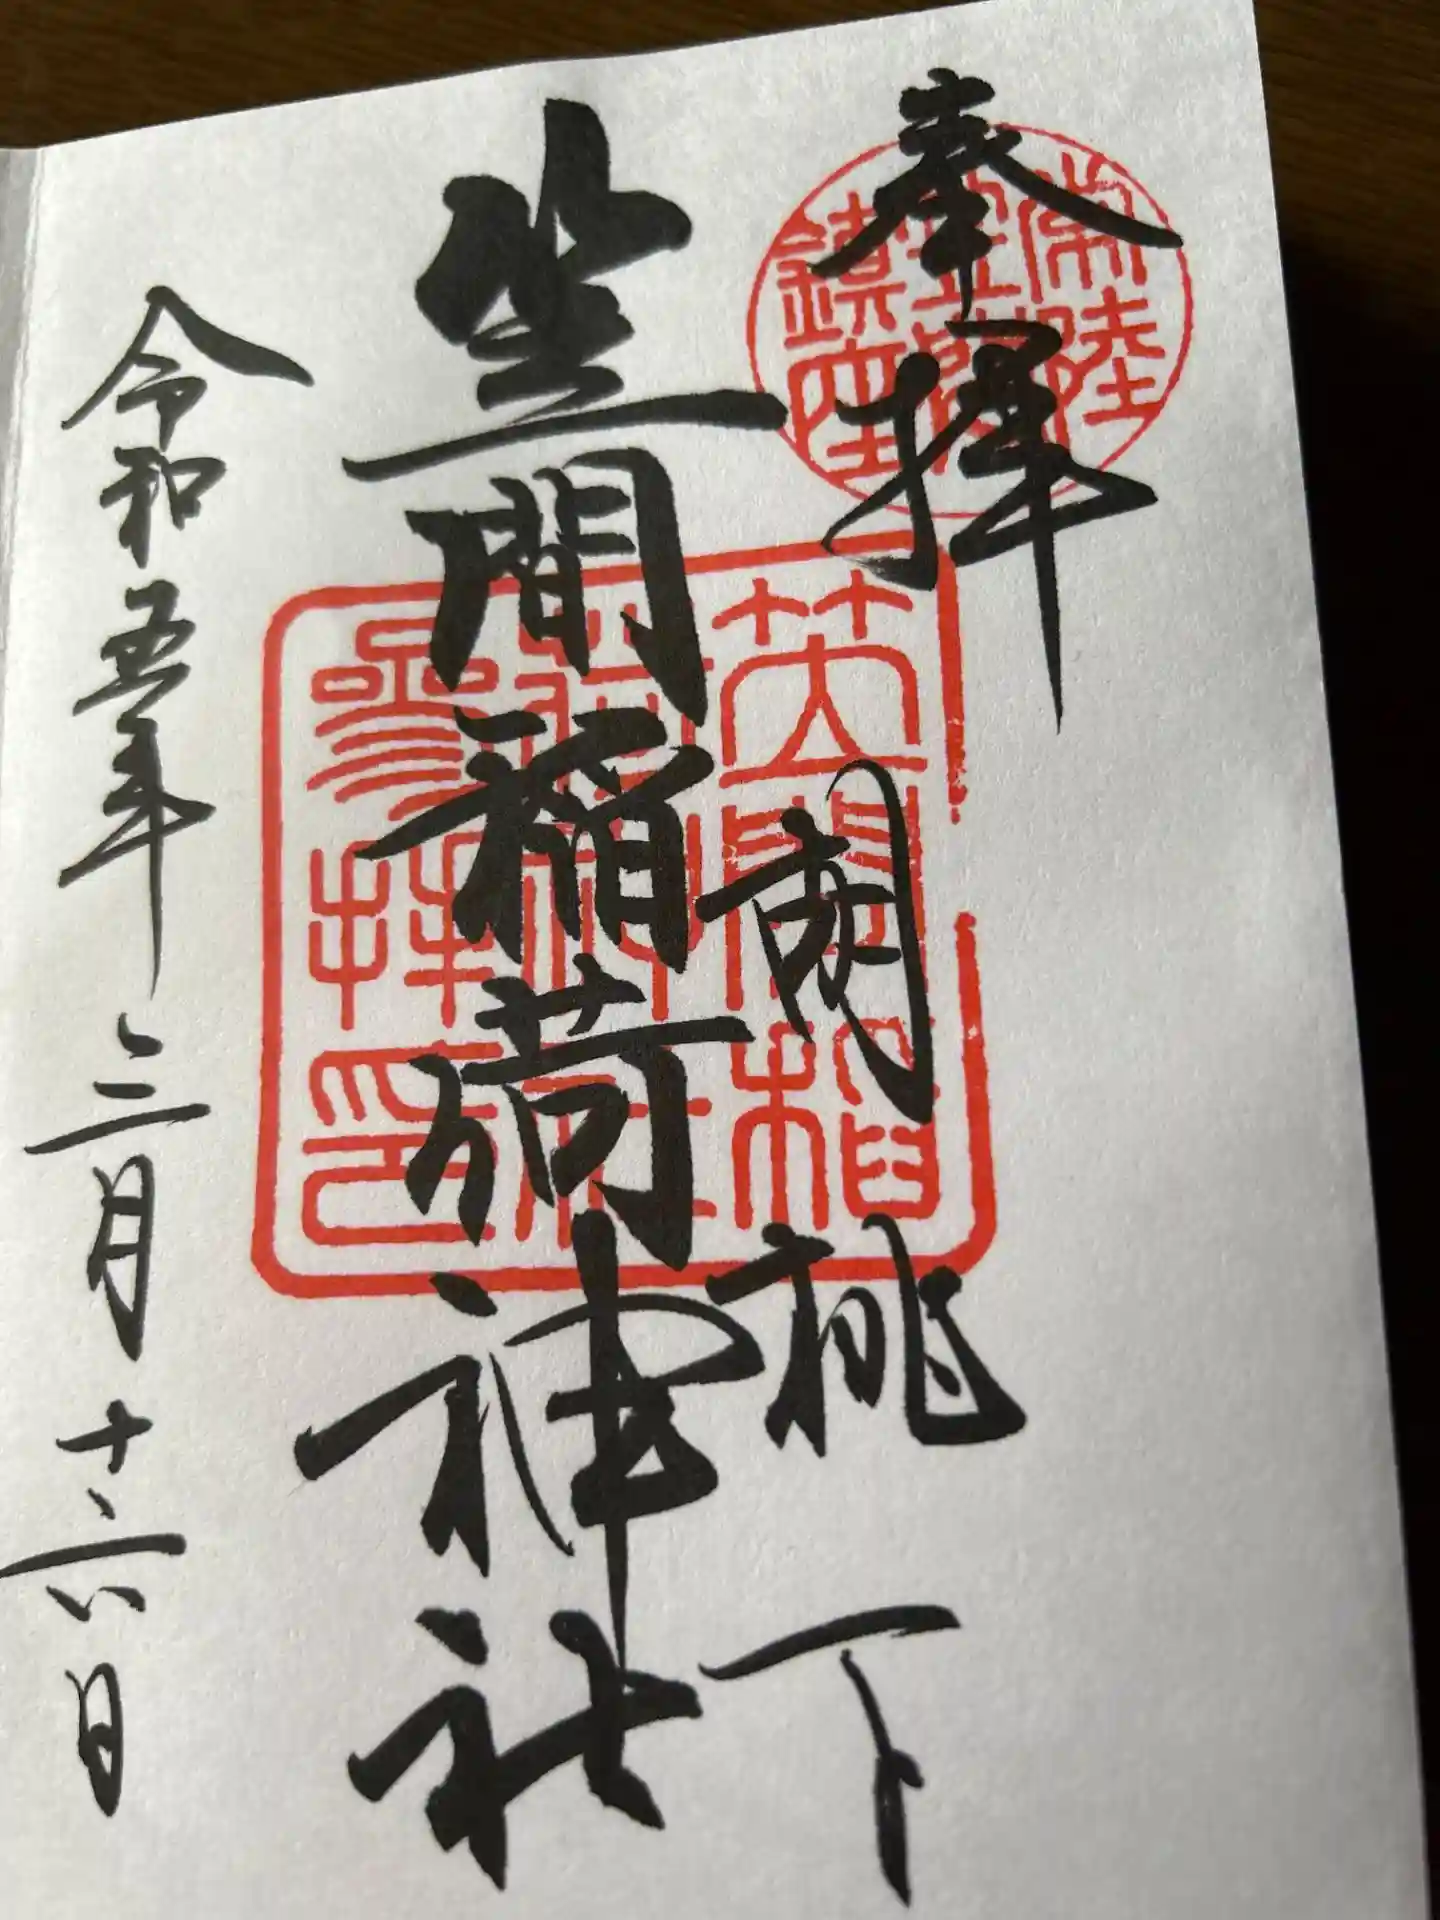 奉拝
胡桃下
笠間稲荷神社
令和五年三月十六日
常陸
笠間
鎮座
笠間稲
荷神社
参拝印